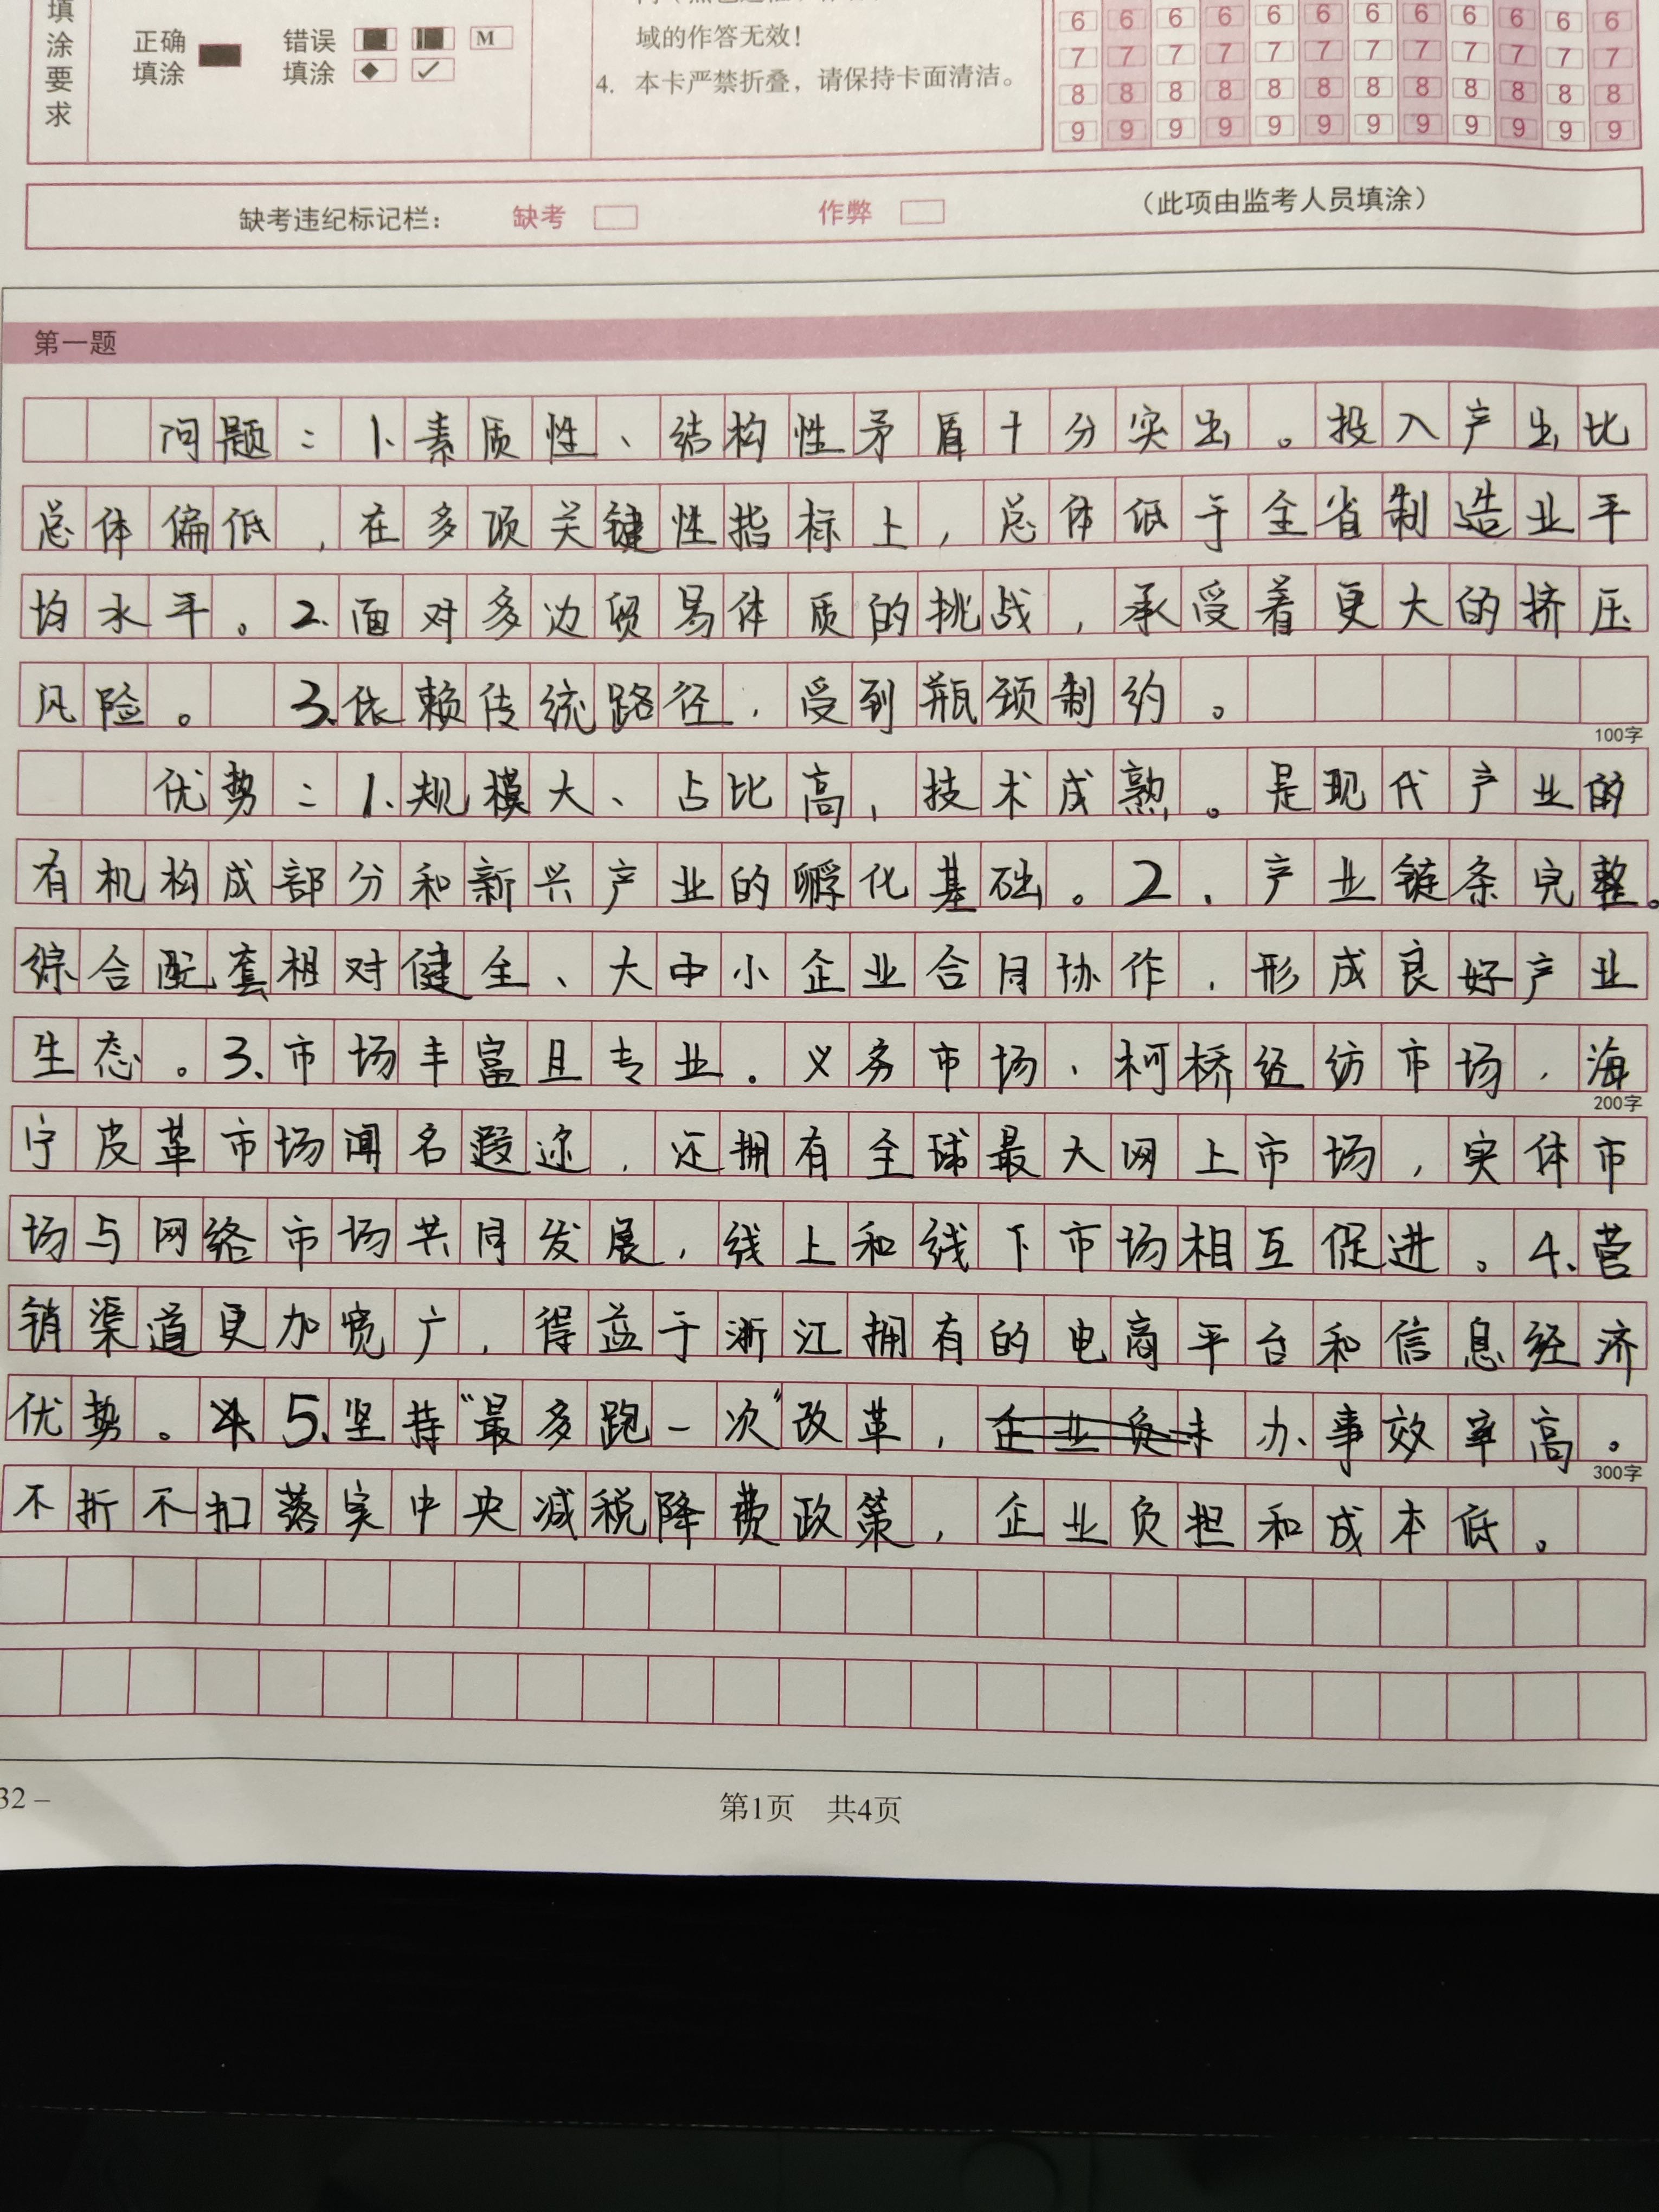 填涂要求
正确填涂
错误填涂
M
域的作答无效！
4. 本卡严禁折叠，请保持卡面清洁。
6 6 6 6 6 6 6 6 6 6 6 6
7 7 7 7 7 7 7 7 7 7 7 7
8 8 8 8 8 8 8 8 8 8 8 8
9 9 9 9 9 9 9 9 9 9 9 9
缺考违纪标记栏： 缺考 作弊 （此项由监考人员填涂）
第一题
问题：1.素质性、结构性矛盾十分突出。投入产出比
总体偏低，在多项关键性指标上，总体低于全省制造业平
均水平。2.面对多边贸易体质的挑战，承受着更大的挤压
风险。 3.依赖传统路径，受到瓶颈制约。
100字
优势：1.规模大、占比高，技术成熟。是现代产业的
有机构成部分和新兴产业的孵化基础。2.产业链条完整。
综合配套相对健全、大中小企业合同协作，形成良好产业
生态。3.市场丰富且专业。义务市场、柯桥经纺市场，海
200字
宁皮革市场闻名遐迩，还拥有全球最大网上市场，实体市
场与网络市场共同发展，线上和线下市场相互促进。4.营
销渠道更加宽广，得益于浙江拥有的电商平台和信息经济
优势。5.坚持“最多跑一次”改革，办事效率高。
300字
不折不扣落实中央减税降费政策，企业负担和成本低。
32 –
第1页 共4页